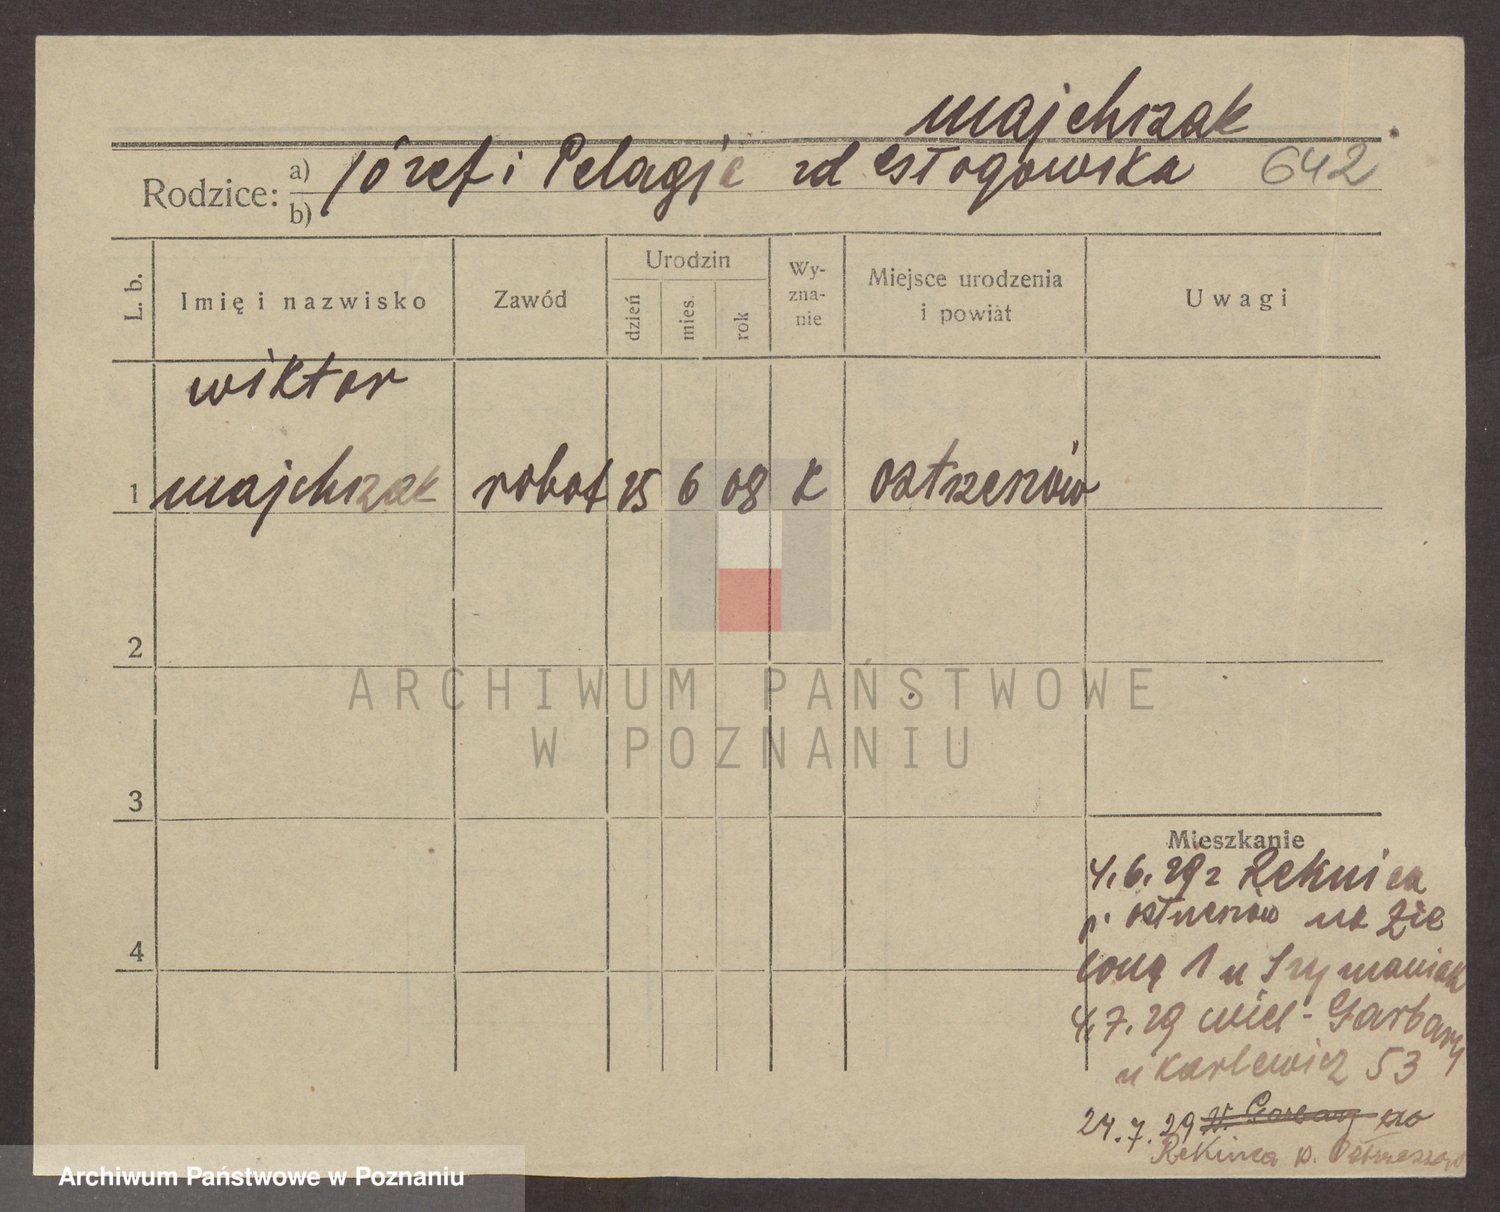 Majchrzak
Rodzice: a) Józef i Pelagje zd 642
b)
L. b.
Imię i nazwisko
Zawód
Urodzin
dzień
mies.
rok
Wy-
zna-
nie
Miejsce urodzenia
i powiat
Uwagi
Wiktor
1 Majchrzak robot 25 6 08 K Ostrzeszów
2
3
4
Mieszkanie
4.6.29 z
p. Ostrzeszów na Zie
loną 1 u Szymaniak
4.7.29 Wiel-Garbary
u Karlewicz 53
24.7.29 W. Garbary do
p. Ostrzeszów
ARCHIWUM PAŃSTWOWE
W POZNANIU
Archiwum Państwowe w Poznaniu